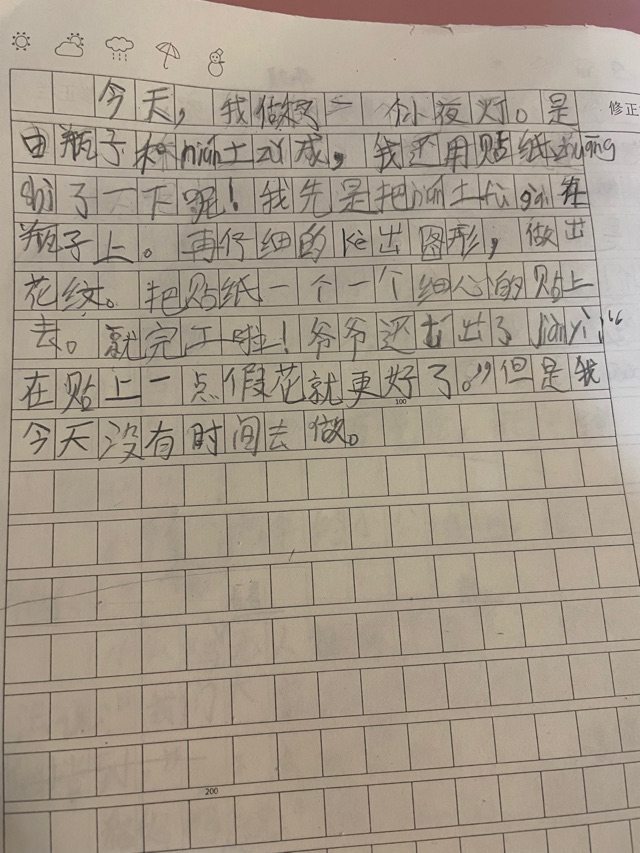 修正
今天,我做了一个小夜灯。是
由瓶子和nián土zǔ成,我还用贴纸zhuāng
shì了一下呢!我先是把nián土fù gài在
瓶子上。再仔细的kè出图形,做出
花纹。把贴纸一个一个细心的贴上
去。就完工啦!爷爷还提出了jiànyì:“
在贴上一点假花就更好了。”但是我
100
今天没有时间去做。
200